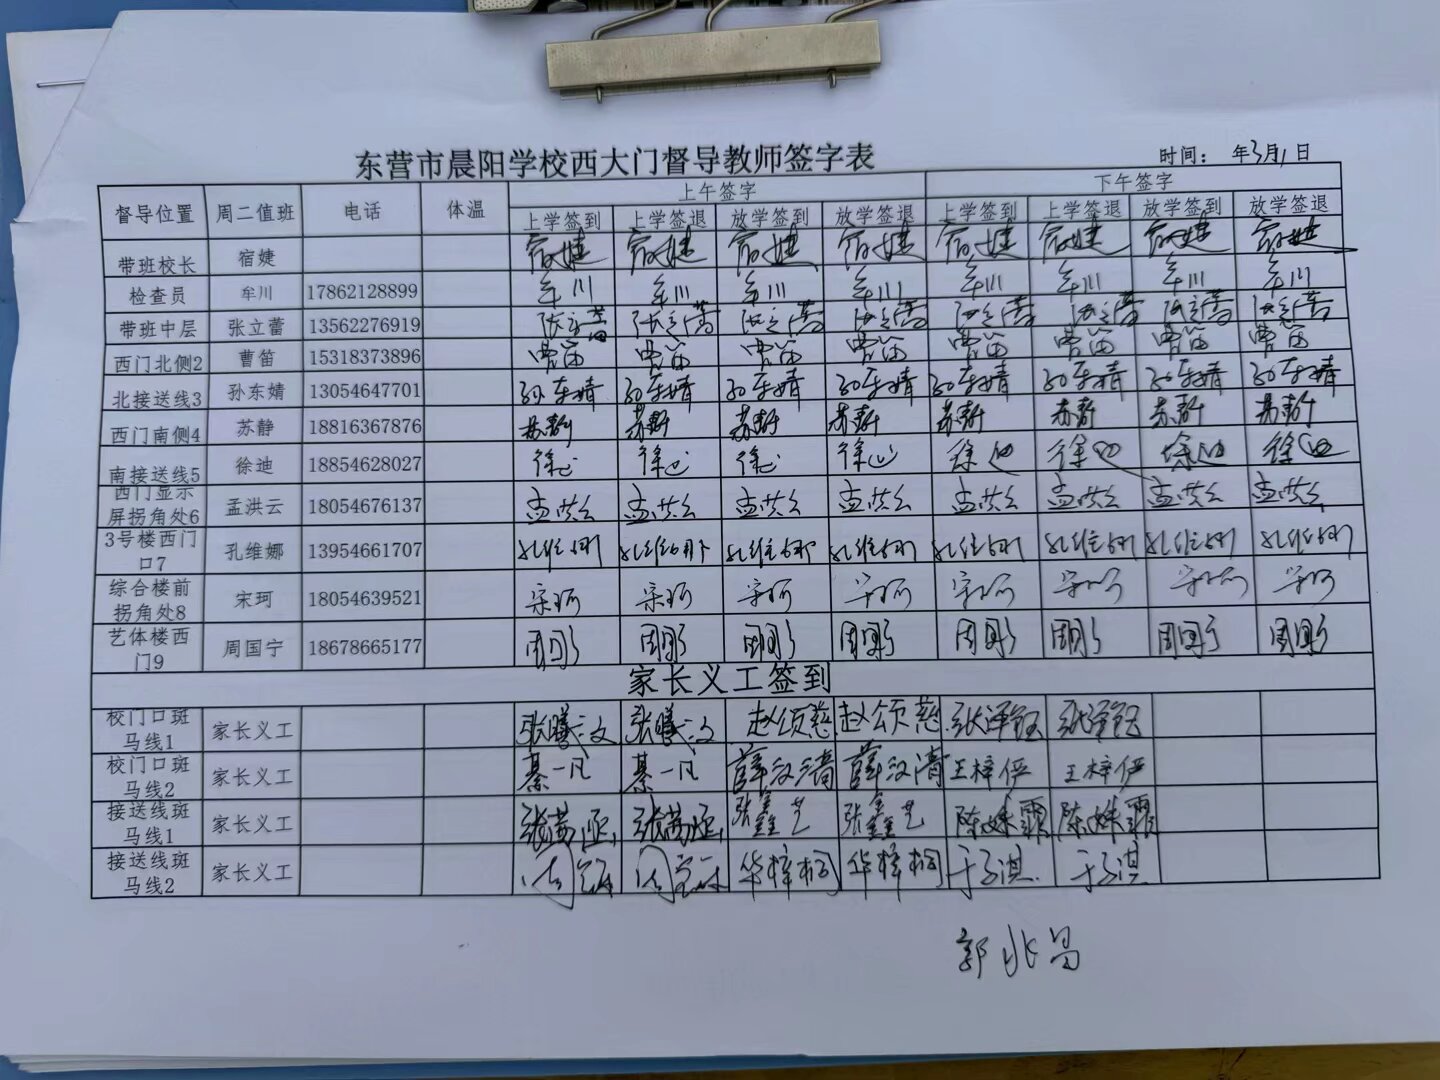 东营市晨阳学校西大门督导教师签字表
时间： 年3月1日
督导位置 周二值班 电话 体温 上午签字 下午签字
上学签到 上学签退 放学签到 放学签退 上学签到 上学签退 放学签到 放学签退
带班校长 宿婕 宿婕 宿婕 宿婕 宿婕 宿婕 宿婕 宿婕 宿婕
检查员 牟川 17862128899 牟川 牟川 牟川 牟川 牟川 牟川 牟川 牟川
带班中层 张立蕾 13562276919 张立蕾 张立蕾 张立蕾 张立蕾 张立蕾 张立蕾 张立蕾 张立蕾
西门北侧2 曹笛 15318373896 曹笛 曹笛 曹笛 曹笛 曹笛 曹笛 曹笛 曹笛
北接送线3 孙东婧 13054647701 孙东婧 孙东婧 孙东婧 孙东婧 孙东婧 孙东婧 孙东婧 孙东婧
西门南侧4 苏静 18816367876 苏静 苏静 苏静 苏静 苏静 苏静 苏静 苏静
南接送线5 徐迪 18854628027 徐迪 徐迪 徐迪 徐迪 徐迪 徐迪 徐迪 徐迪
西门显示
屏拐角处6 孟洪云 18054676137 孟洪云 孟洪云 孟洪云 孟洪云 孟洪云 孟洪云 孟洪云 孟洪云
3号楼西门
口7 孔维娜 13954661707 孔维娜 孔维娜 孔维娜 孔维娜 孔维娜 孔维娜 孔维娜 孔维娜
综合楼前
拐角处8 宋珂 18054639521 宋珂 宋珂 宋珂 宋珂 宋珂 宋珂 宋珂 宋珂
艺体楼西
门9 周国宁 18678665177 周国宁 周国宁 周国宁 周国宁 周国宁 周国宁 周国宁 周国宁
家长义工签到
校门口班
马线1 家长义工 张曦文 张曦文 赵颂慈 赵颂慈 张泽钰 张泽钰
校门口班
马线2 家长义工 綦一凡 綦一凡 薛汶清 薛汶清 王梓俨 王梓俨
接送线班
马线1 家长义工 张鑫艺 张鑫艺 陈姝霏 陈姝霏
接送线班
马线2 家长义工 华梓桐 华梓桐 于子淇 于子淇
郭兆昌